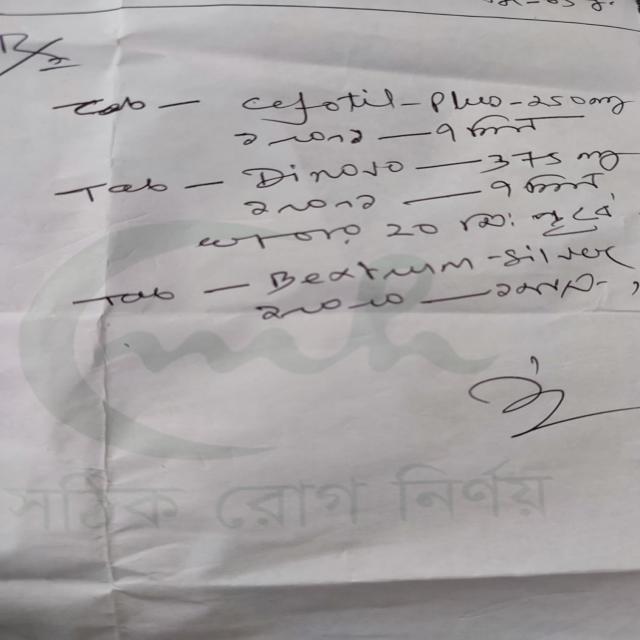 R/x
Tab — Cefotil-Plus-250mg
১+০+১ — ৭ দিন
Tab — Dinovo — 375 mg
১+০+১ — ৭ দিন
20 মি: পূর্বে
Tab — Bextrum-Silver
১+০+০ —
mh
সঠিক রোগ নির্ণয়